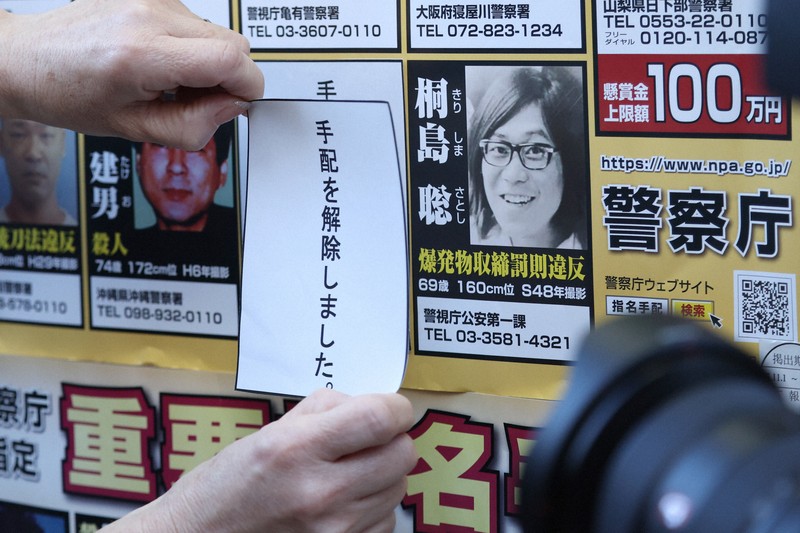 警視庁亀有警察署
TEL 03-3607-0110
大阪府寝屋川警察署
TEL 072-823-1234
山梨県日下部警察署
TEL 0553-22-0110
フリーダイヤル 0120-114-087
懸賞金
上限額
100万円
https://www.npa.go.jp/
警察庁
警察庁ウェブサイト
指名手配 検索
手
手配を解除しました。
桐島 聡
きり しま さとし
爆発物取締罰則違反
69歳 160cm位 S48年撮影
警視庁公安第一課
TEL 03-3581-4321
建男
たけ お
殺人
74歳 172cm位 H6年撮影
沖縄県沖縄警察署
TEL 098-932-0110
刀法違反
H29年撮影
578-0110
察庁
指定
重要
名
掲出期